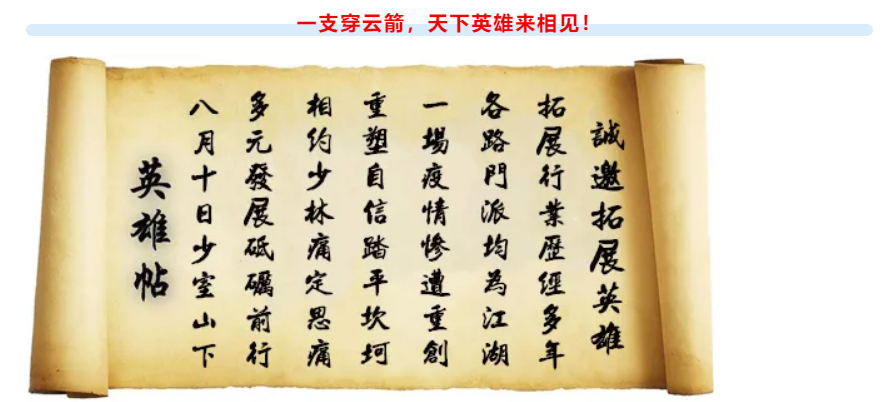 一支穿云箭，天下英雄来相见！
誠邀拓展英雄
拓展行業歷經多年
各路門派均為江湖
一場疫情慘遭重創
重塑自信踏平坎坷
相约少林痛定思痛
多元發展砥礪前行
八月十日少室山下
英雄帖